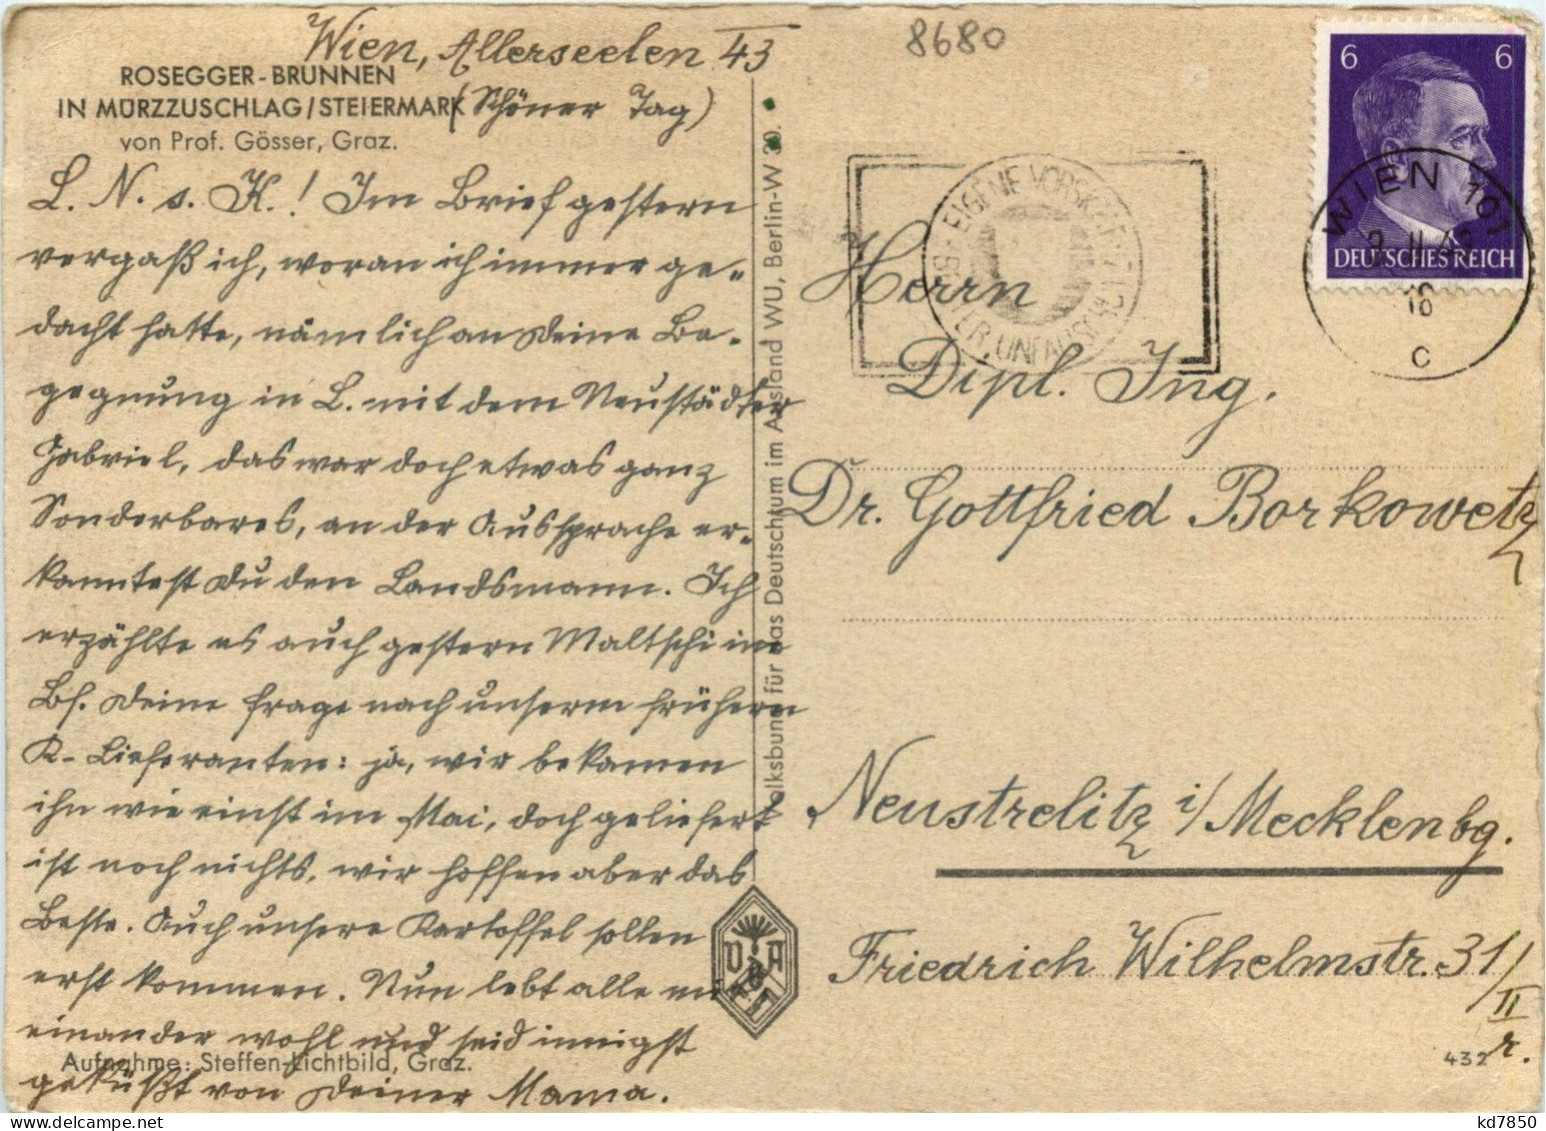 Wien, Allerseelen 43
ROSEGGER-BRUNNEN
IN MÜRZZUSCHLAG/STEIERMARK
(Schöner Tag)
von Prof. Gösser, Graz.
L. N. s. K.! Im Brief gestern
vergaß ich, woran ich immer ge-
dacht hatte, nämlich an Deine Be-
gegnung in L. mit dem Neustädter
Gabriel, das war doch etwas ganz
Sonderbares, an der Aussprache er-
kanntest Du den Landsmann. Ich
erzählte es auch gestern Maltschi im
Bf. Deine Frage nach unserm frühern
K-Lieferanten: ja, wir bekamen
ihn wie einst im Mai, doch geliefert
ist noch nichts, wir hoffen aber das
Beste. Auch unsere Kartoffel sollen
erst kommen. Nun lebt alle mit
einander wohl und seid innigst
geküßt von Deiner Mama.
Aufnahme: Steffen-Lichtbild, Graz.
Volksbund für das Deutschtum im Ausland WU, Berlin-W 30.
VDA
8680
6 6
DEUTSCHES REICH
WIEN 101
18
C
Herrn
Dipl. Ing.
Dr. Gottfried Borkowetz
Neustrelitz i/Mecklenbg.
Friedrich Wilhelmstr. 31/
II
r.
432
kd7850